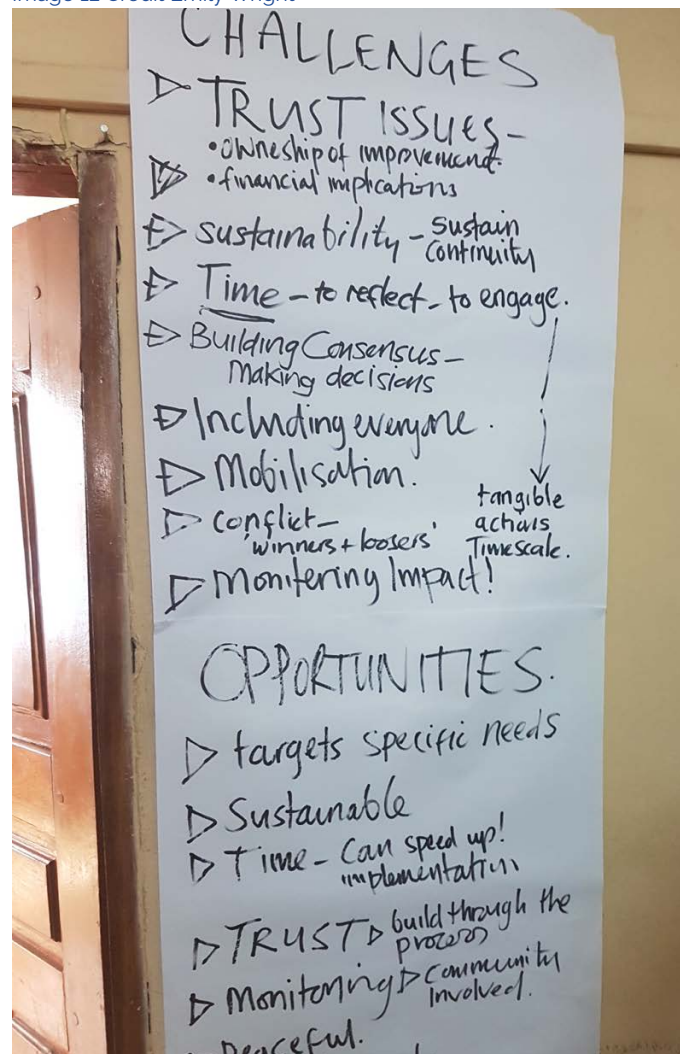 CHALLENGES
TRUST ISSUES -
• owneship of improvement.
• financial implications
sustainability - sustain
continuity
Time - to reflect - to engage.
Building Consensus -
Making decisions
Including everyone.
Mobilisation.
conflict -
'winners + loosers'
tangible
actions
Timescale.
Monitering Impact!
OPPORTUNITIES.
targets specific needs
Sustainable
Time - Can speed up!
implementation
TRUST build through the
process
Monitoring Community
involved.
Peaceful.